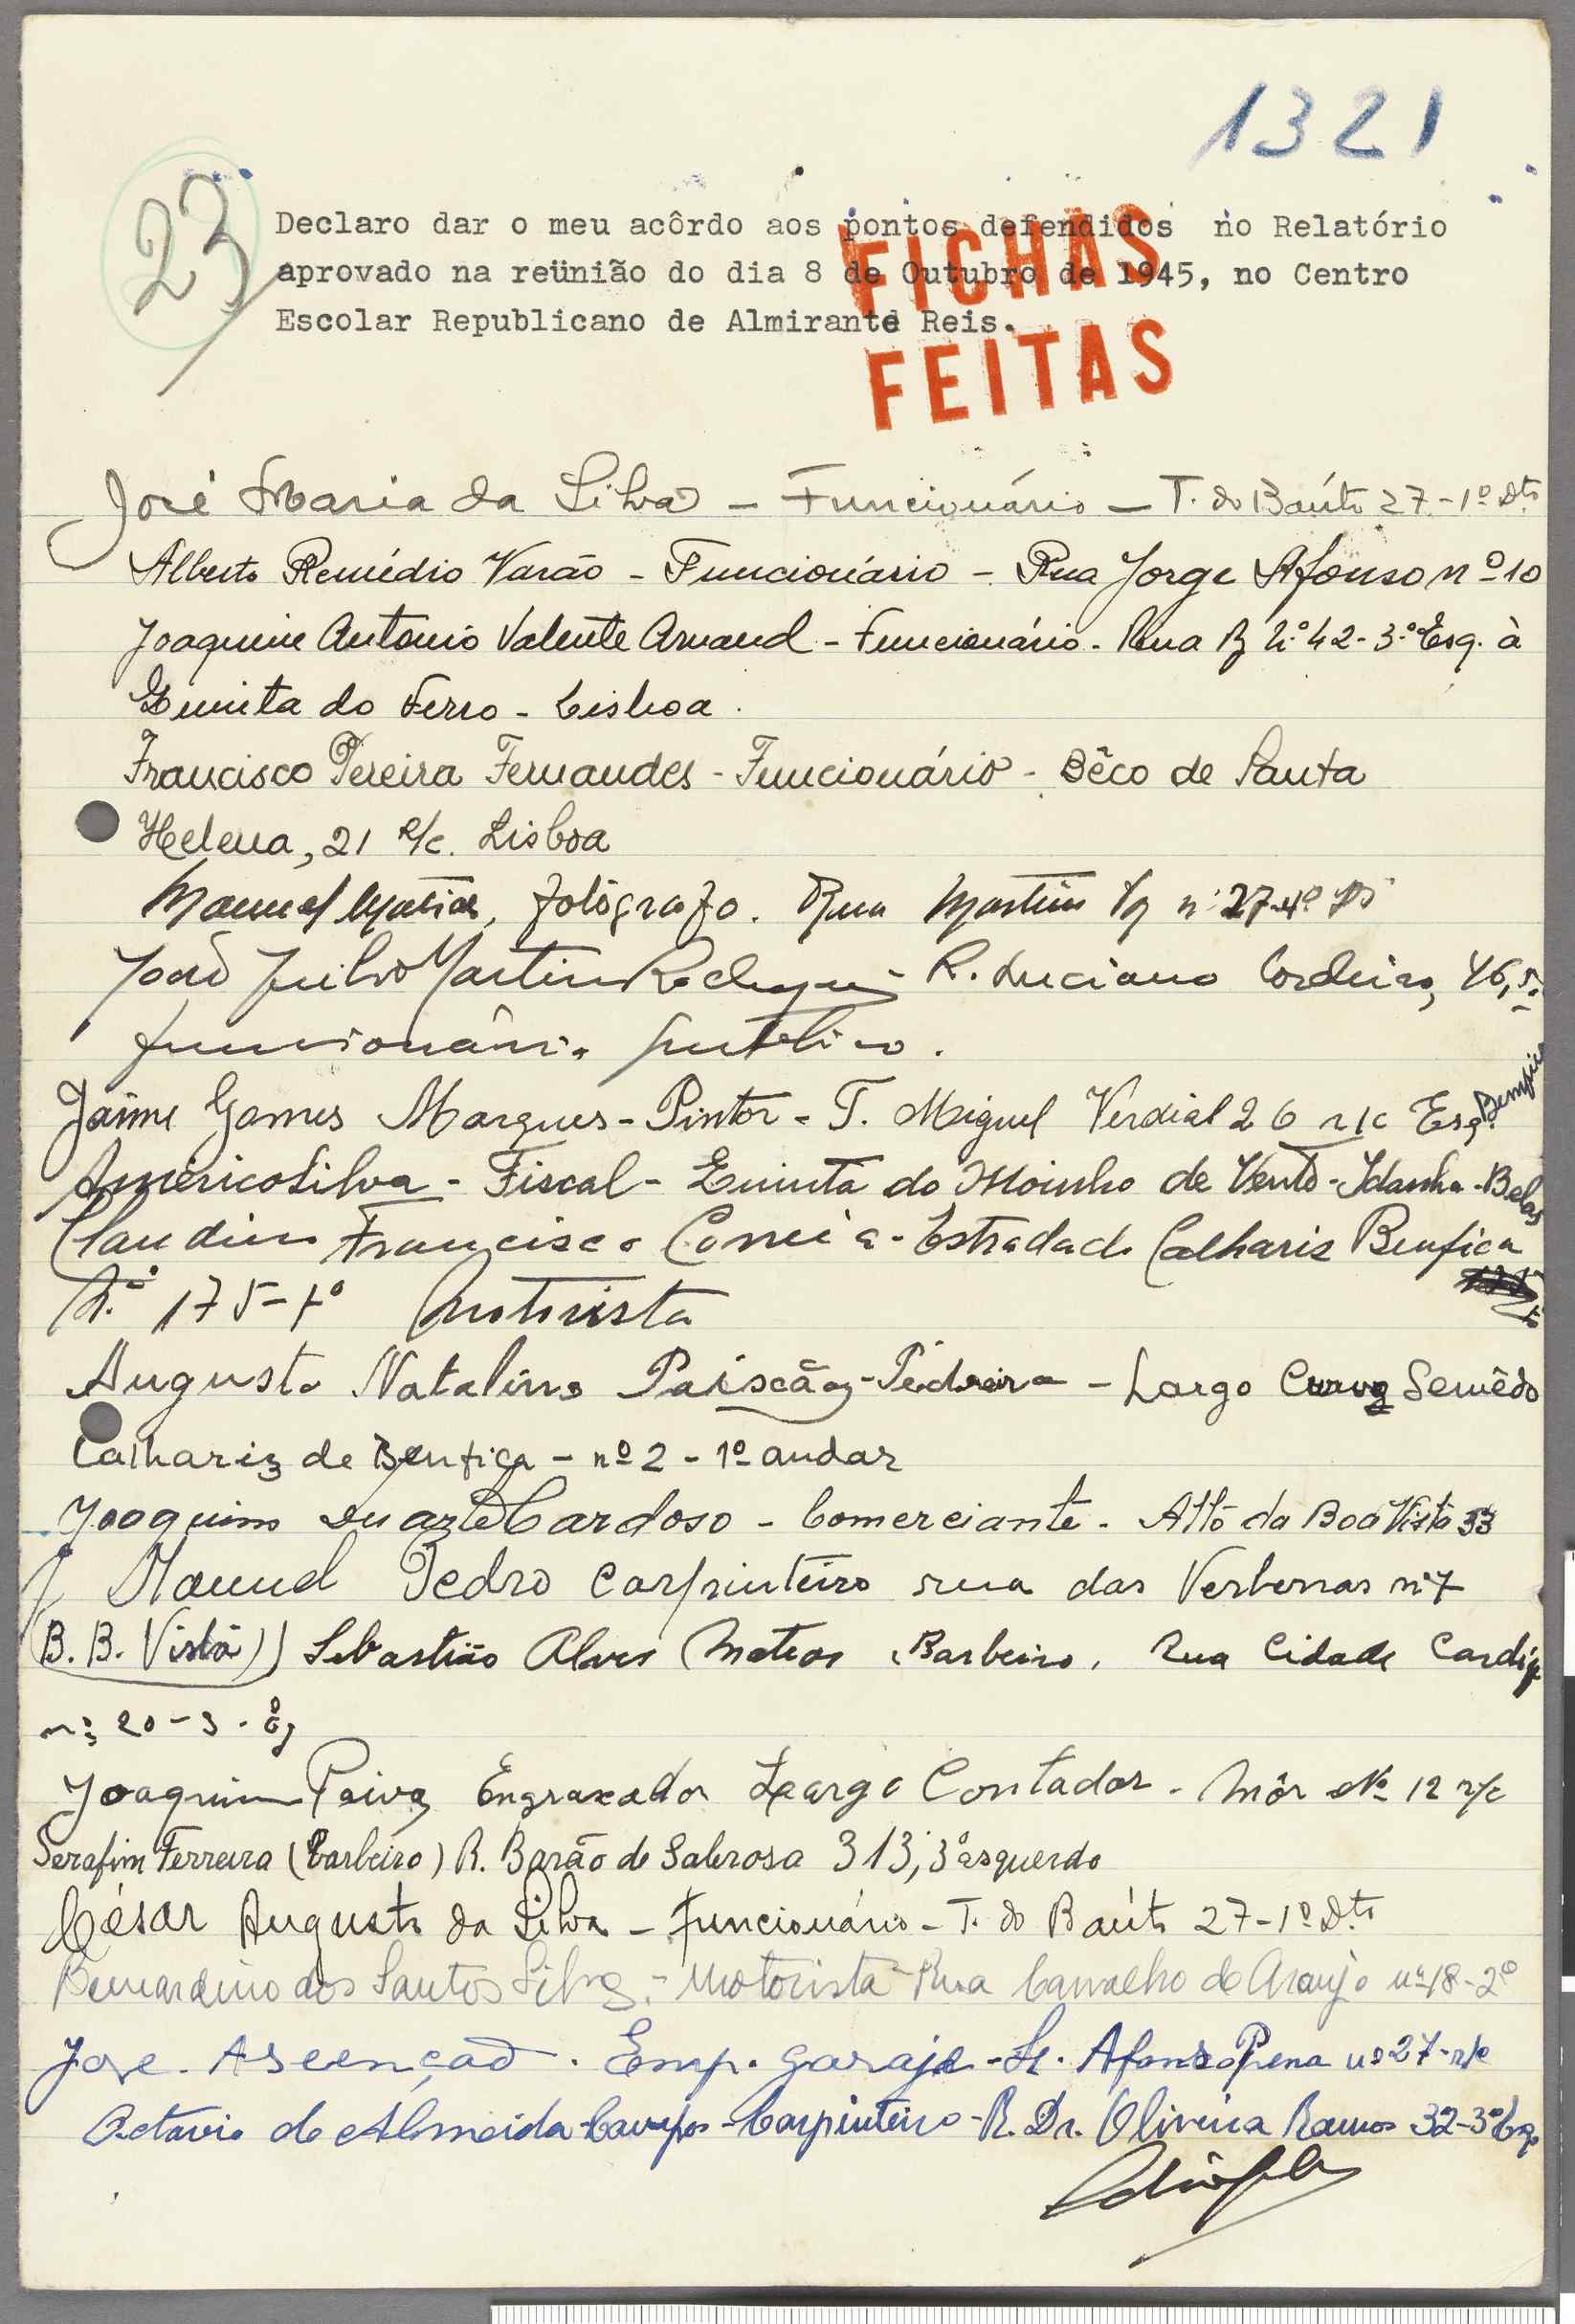 1321
23
Declaro dar o meu acôrdo aos pontos defendidos no Relatório
aprovado na reünião do dia 8 de Outubro de 1945, no Centro
Escolar Republicano de Almirante Reis.
FICHAS
FEITAS
José Maria da Silva - Funcionário - T. do Baúto 27-1º Dto
Alberto Remédio Varão - Funcionário - Rua Jorge Afonso nº 10
Joaquim Antonio Valente Arnaud - Funcionário - Rua B N.º 42-3.º Esq. à
Quinta do Ferro - Lisboa.
Francisco Pereira Fernandes - Funcionário - Bêco de Santa
Helena, 21 R/c. Lisboa
Manuel Matias, fotógrafo. Rua Martim Vaz nº 27-4º
João Julio Martins - R. Luciano Cordeiro, 46, 5.º
funcionário publico.
Jaime Gomes Marques - Pintor - T. Miguel Verdial 26 r/c Esq. Bemfica
Américo Silva - Fiscal - Quinta do Moinho de Vento - Idanha - Belas
Claudino Francisco Correia - Estrada de Calhariz Benfica
N.º 175-1º Motorista
Augusto Natalino Paixão - Pedreiro - Largo Curvo Semêdo
Calhariz de Benfica - nº 2 - 1º andar
Joaquim Duarte Cardoso - Comerciante - Alto da Boa Vista 33
Manuel Pedro Carpinteiro rua das Verbenas nº 7
B. B. Vista)) Sebastião Alves Mateos, Barbeiro, Rua Cidade Cardife
nº 20-3.º
Joaquim Paiva Engraxador Largo Contador-Môr Nº 12 r/c
Serafim Ferreira (barbeiro) R. Barão de Sabrosa 313, 3º esquerdo
César Augusto da Silva - funcionário - T. do Baúto 27-1º Dto
Bernardino dos Santos Silva - Motorista - Rua Carvalho de Araujo nº 18-2º
Jose. Asencaõ. Emp. garaje - Afonso Pena nº 27-r/c
Octavio de Almeida Campos - Carpinteiro - R. Dr. Oliveira Ramos 32-3º Esq.